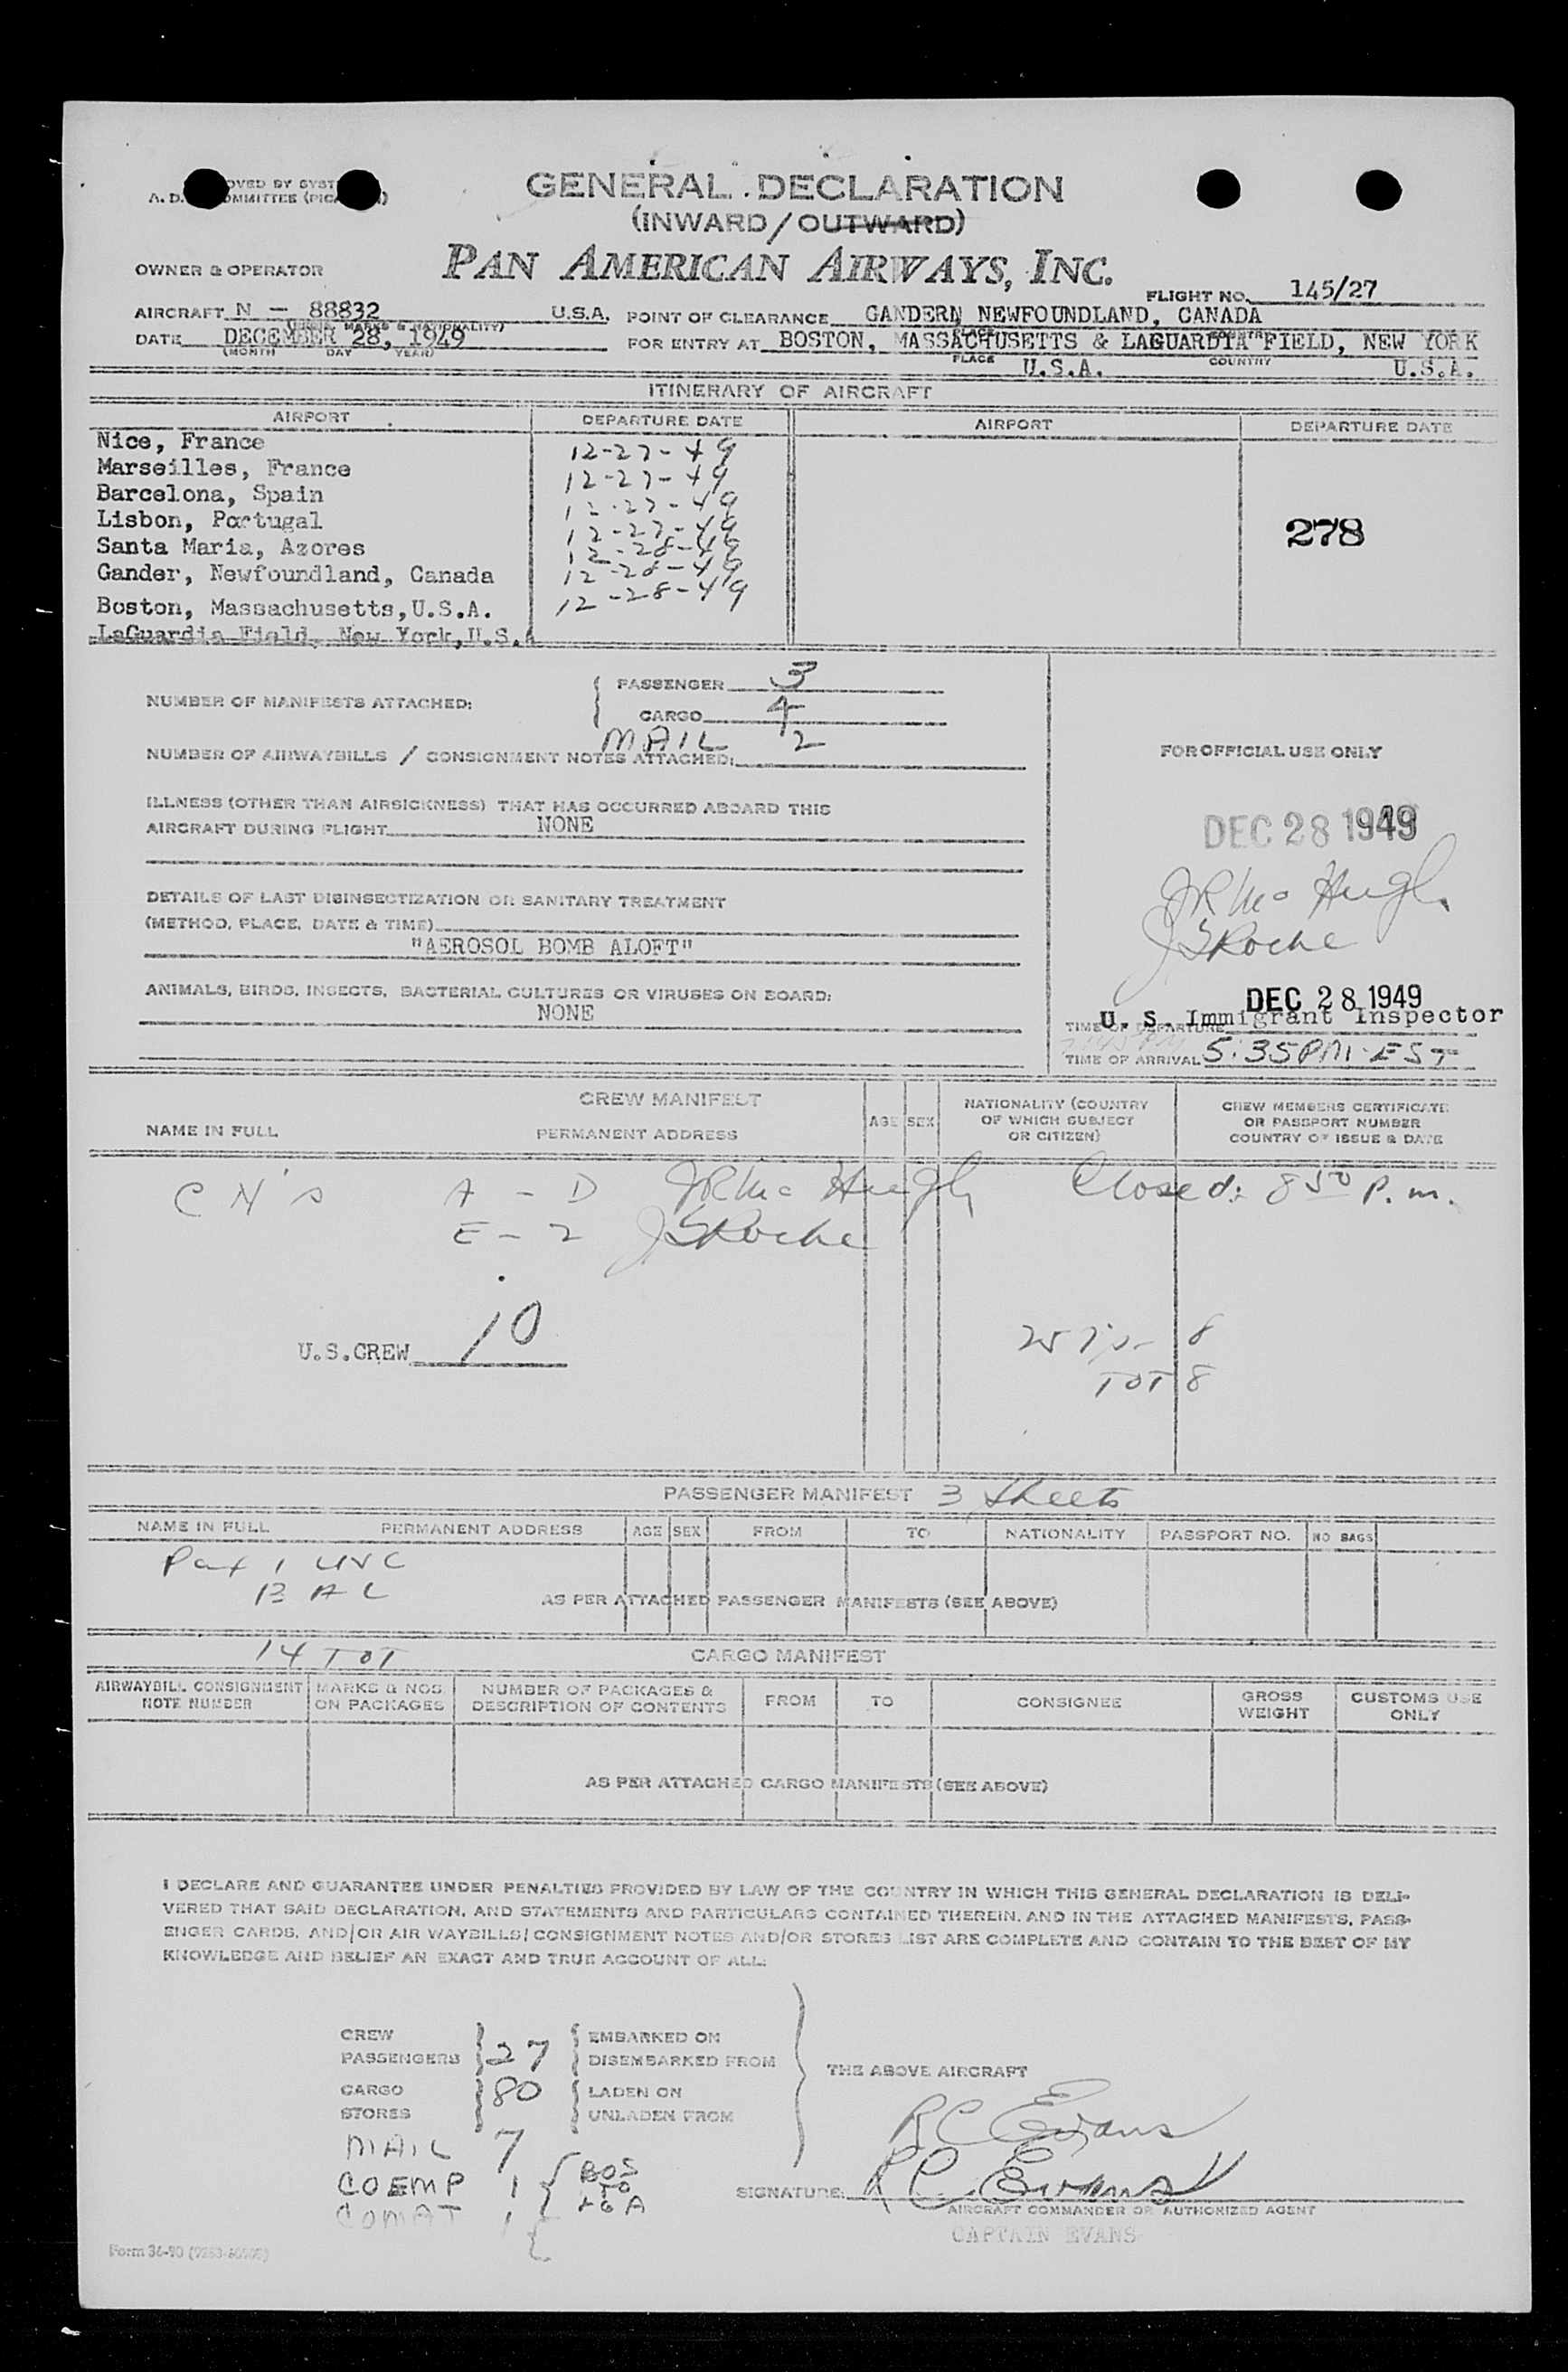 GENERAL DECLARATION
(INWARD/OUTWARD)
PAN AMERICAN AIRWAYS, INC.
OWNER & OPERATOR
FLIGHT NO. 145/27
AIRCRAFT N - 88832 U.S.A. POINT OF CLEARANCE GANDERN NEWFOUNDLAND, CANADA
DATE DECEMBER 28, 1949 FOR ENTRY AT BOSTON, MASSACHUSETTS & LAGUARDIA FIELD, NEW YORK
(MONTH DAY YEAR) PLACE U.S.A. COUNTRY U.S.A.
ITINERARY OF AIRCRAFT
AIRPORT DEPARTURE DATE AIRPORT DEPARTURE DATE
Nice, France 12-27-49
Marseilles, France 12-27-49
Barcelona, Spain 12-27-49
Lisbon, Portugal 12-27-49
Santa Maria, Azores 12-28-49
Gander, Newfoundland, Canada 12-28-49
Boston, Massachusetts,U.S.A. 12-28-49
LaGuardia Field, New York,U.S.A
278
NUMBER OF MANIFESTS ATTACHED: PASSENGER 3
CARGO 4
MAIL 2
NUMBER OF AIRWAYBILLS / CONSIGNMENT NOTES ATTACHED:
FOR OFFICIAL USE ONLY
ILLNESS (OTHER THAN AIRSICKNESS) THAT HAS OCCURRED ABOARD THIS
AIRCRAFT DURING FLIGHT NONE
DEC 28 1949
JR McHugh
JSRoche
DETAILS OF LAST DISINSECTIZATION OR SANITARY TREATMENT
(METHOD, PLACE, DATE & TIME)
"AEROSOL BOMB ALOFT"
ANIMALS, BIRDS, INSECTS, BACTERIAL CULTURES OR VIRUSES ON BOARD:
NONE
DEC 28 1949
U. S. Immigrant Inspector
TIME OF DEPARTURE
TIME OF ARRIVAL 5:35PM EST
CREW MANIFEST
NAME IN FULL PERMANENT ADDRESS AGE SEX NATIONALITY (COUNTRY OF WHICH SUBJECT OR CITIZEN) CREW MEMBERS CERTIFICATE OR PASSPORT NUMBER COUNTRY OF ISSUE & DATE
CN's A - D JR McHugh Closed: 8 50 P.m.
E - 2 JSRoche
U.S.CREW 10
8
TOT 8
PASSENGER MANIFEST 3 sheets
NAME IN FULL PERMANENT ADDRESS AGE SEX FROM TO NATIONALITY PASSPORT NO. NO BAGS
Pax 1
AS PER ATTACHED PASSENGER MANIFESTS (SEE ABOVE)
14 TOT
CARGO MANIFEST
AIRWAYBILL CONSIGNMENT NOTE NUMBER MARKS & NOS. ON PACKAGES NUMBER OF PACKAGES & DESCRIPTION OF CONTENTS FROM TO CONSIGNEE GROSS WEIGHT CUSTOMS USE ONLY
AS PER ATTACHED CARGO MANIFESTS (SEE ABOVE)
I DECLARE AND GUARANTEE UNDER PENALTIES PROVIDED BY LAW OF THE COUNTRY IN WHICH THIS GENERAL DECLARATION IS DELI-
VERED THAT SAID DECLARATION, AND STATEMENTS AND PARTICULARS CONTAINED THEREIN, AND IN THE ATTACHED MANIFESTS, PASS-
ENGER CARDS, AND/OR AIR WAYBILLS/CONSIGNMENT NOTES AND/OR STORES LIST ARE COMPLETE AND CONTAIN TO THE BEST OF MY
KNOWLEDGE AND BELIEF AN EXACT AND TRUE ACCOUNT OF ALL:
CREW EMBARKED ON
PASSENGERS 27 DISEMBARKED FROM
THE ABOVE AIRCRAFT
CARGO 80 LADEN ON
STORES UNLADEN FROM
RC Evans
MAIL 7
COEMP 1 BOS TO LGA
COMAT 1
SIGNATURE: RC Evans
AIRCRAFT COMMANDER OR AUTHORIZED AGENT
CAPTAIN EVANS